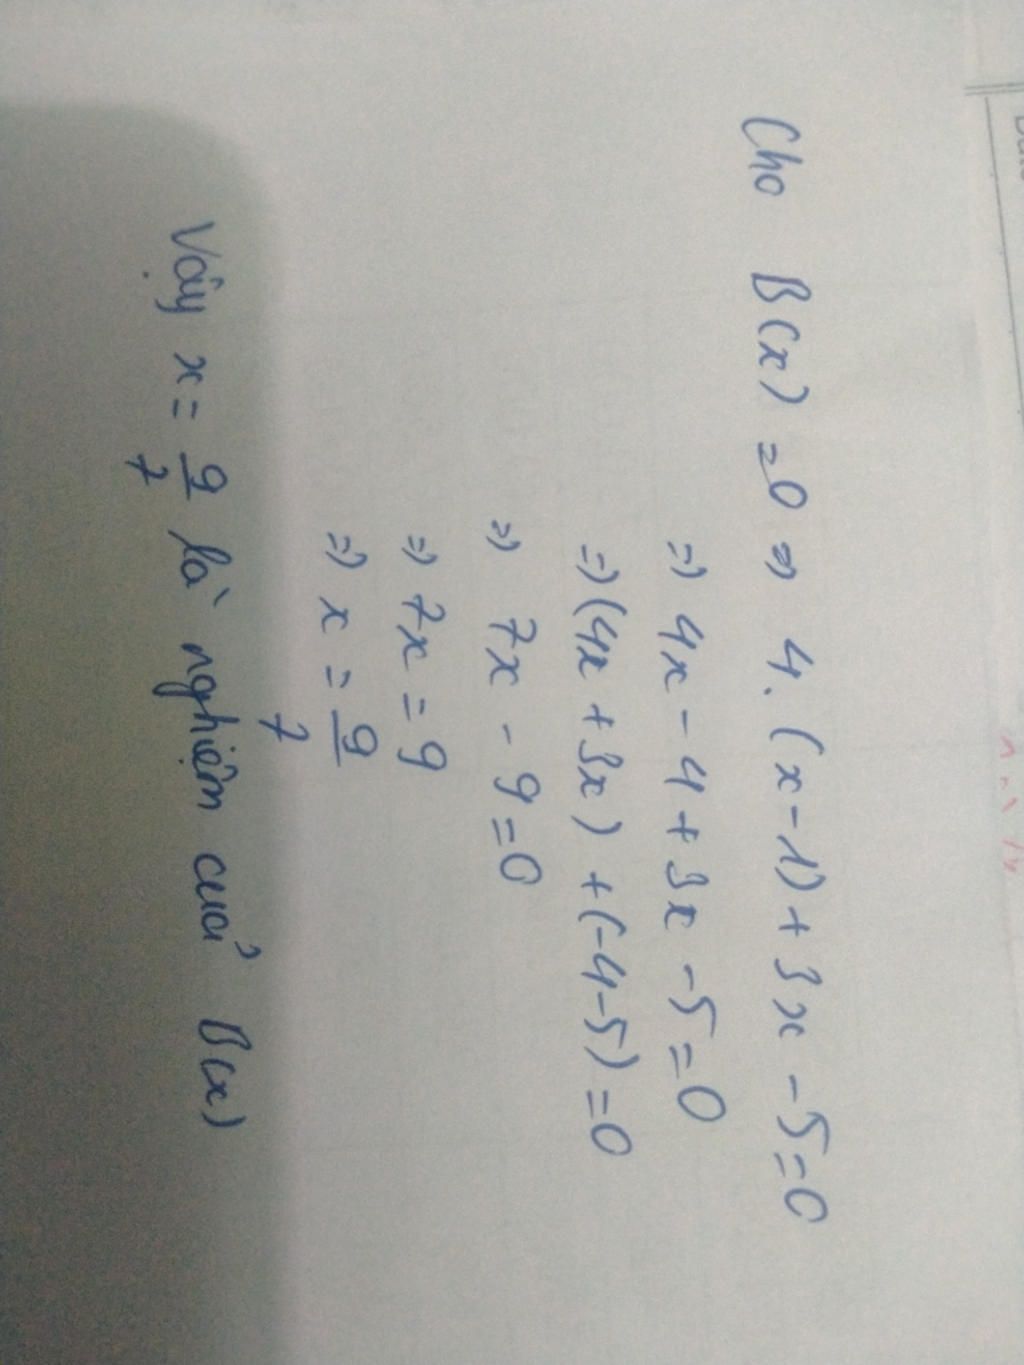 Cho B(x) = 0 => 4.(x-1) + 3x - 5 = 0
=> 4x - 4 + 3x - 5 = 0
=> (4x + 3x) + (-4-5) = 0
=> 7x - 9 = 0
=> 7x = 9
=> x = 9/7
Vậy x = 9/7 là nghiệm của B(x)